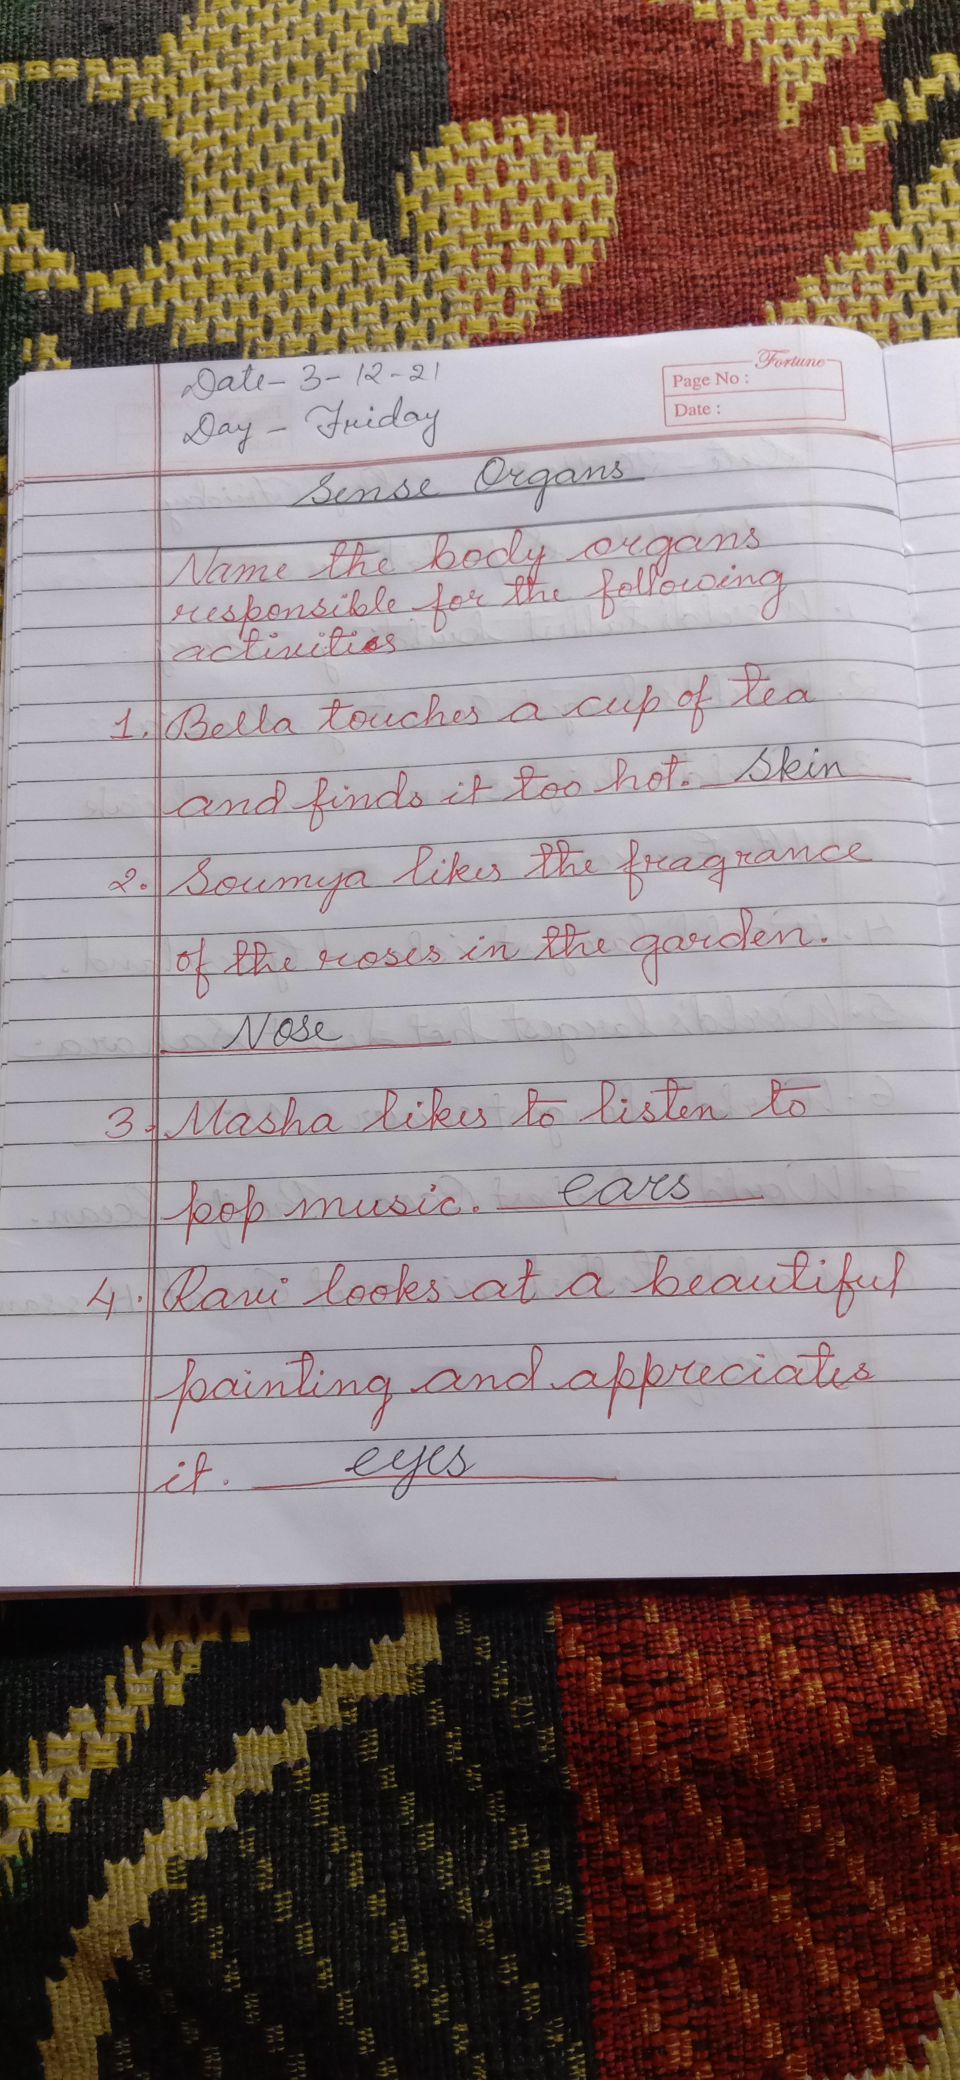 Date- 3-12-21
Day - Friday
Fortune
Page No :
Date :
Sense Organs
Name the body organs
responsible for the following
activities
1. Bella touches a cup of tea
and finds it too hot. Skin
2. Soumya likes the fragrance
of the roses in the garden.
Nose
3. Masha likes to listen to
pop music. ears
4. Ravi looks at a beautiful
painting and appreciates
it. eyes